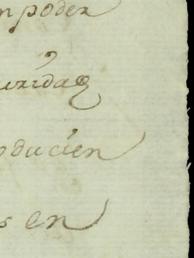 n poder
uridad
oducien
s en